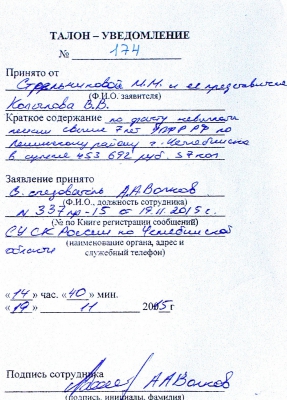 ТАЛОН – УВЕДОМЛЕНИЕ
№ 174
Принято от
Стрельниковой М.М. и ее представителя
(Ф.И.О. заявителя)
Колчлова В.В.
Краткое содержание по факту невыплаты
пенсии свыше 7 лет УПФР РФ по
Ленинскому району г. Челябинска
в сумме 453 692 руб. 57 коп.
Заявление принято
В. следователь А.А Волков
(Ф.И.О., должность сотрудника)
N 337пр-15 от 19.11.2015 г.
(№ по Книге регистрации сообщений)
СУ СК России по Челябинской
(наименование органа, адрес и
области
служебный телефон)
«14» час. «40» мин.
«19» 11 2015 г
Подпись сотрудника
А.А Волков
(подпись, инициалы, фамилия)